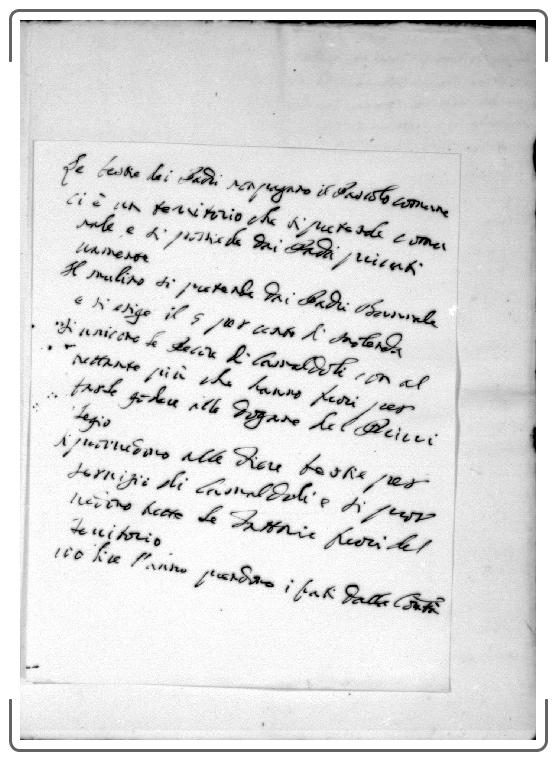 Le bestie dei Padri non pagano il Pascolo comune
ci è un territorio che si pretende comu
nale e si possiede dai Padri privati
vamente
Il mulino si pretende dai Padri
e si esige il 5 per cento di molenda
si uniscono le Pecore di Camaldoli con al
trettante più che hanno fuori per
farle godere alle Dogane del Privi
legio
si provvedono alle Fiere bestie per
servizio di Camaldoli e si prov
vedono tutte le Fattorie fuori del
Territorio
100 lire l'anno prendono i frati dalla Comtà